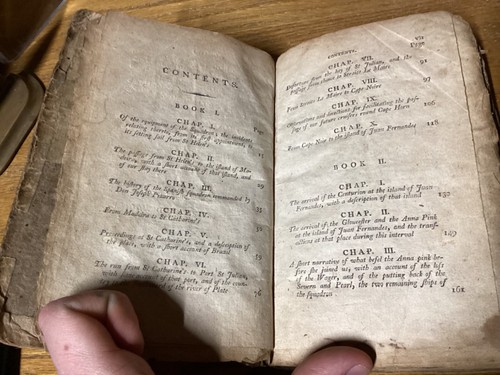 CONTENTS.
BOOK I.
CHAP. I.
Page
Of the equipment of the squadron: the incidents
relating thereto, from its first appointment to
its setting sail from St Helens
15
CHAP. II.
The passage from St Helens to the island of Ma-
deira, with a short account of that island, and
of our stay there
29
CHAP. III.
The history of the Spanish squadron commanded by
Don Joseph Pizarro
35
CHAP. IV.
From Madeira to St Catharine's
52
CHAP. V.
Proceedings at St Catharine's, and a description of
the place, with a short account of Brazil
59
CHAP. VI.
The run from St Catharine's to Port St Julian,
with some account of that port, and of the coun-
of the river of Plate
76
CONTENTS.
vii
Page
CHAP. VII.
Departure from the bay of St Julian, and the
passage from thence to Streights Le Maire
91
CHAP. VIII.
From Streights Le Maire to Cape Noire
97
CHAP. IX.
Observations and directions for facilitating the pas-
sage of our future cruisers round Cape Horn
106
CHAP. X.
From Cape Noir to the island of Juan Fernandes
118
BOOK II.
CHAP. I.
The arrival of the Centurion at the island of Juan
Fernandes, with a description of that island
132
CHAP. II.
The arrival of the Gloucester and the Anna Pink
at the island of Juan Fernandes, and the trans-
actions at that place during this interval
149
CHAP. III.
A short narrative of what befel the Anna pink be-
fore she joined us, with an account of the loss
of the Wager, and of the putting back of the
Severn and Pearl, the two remaining ships of
the squadron
161